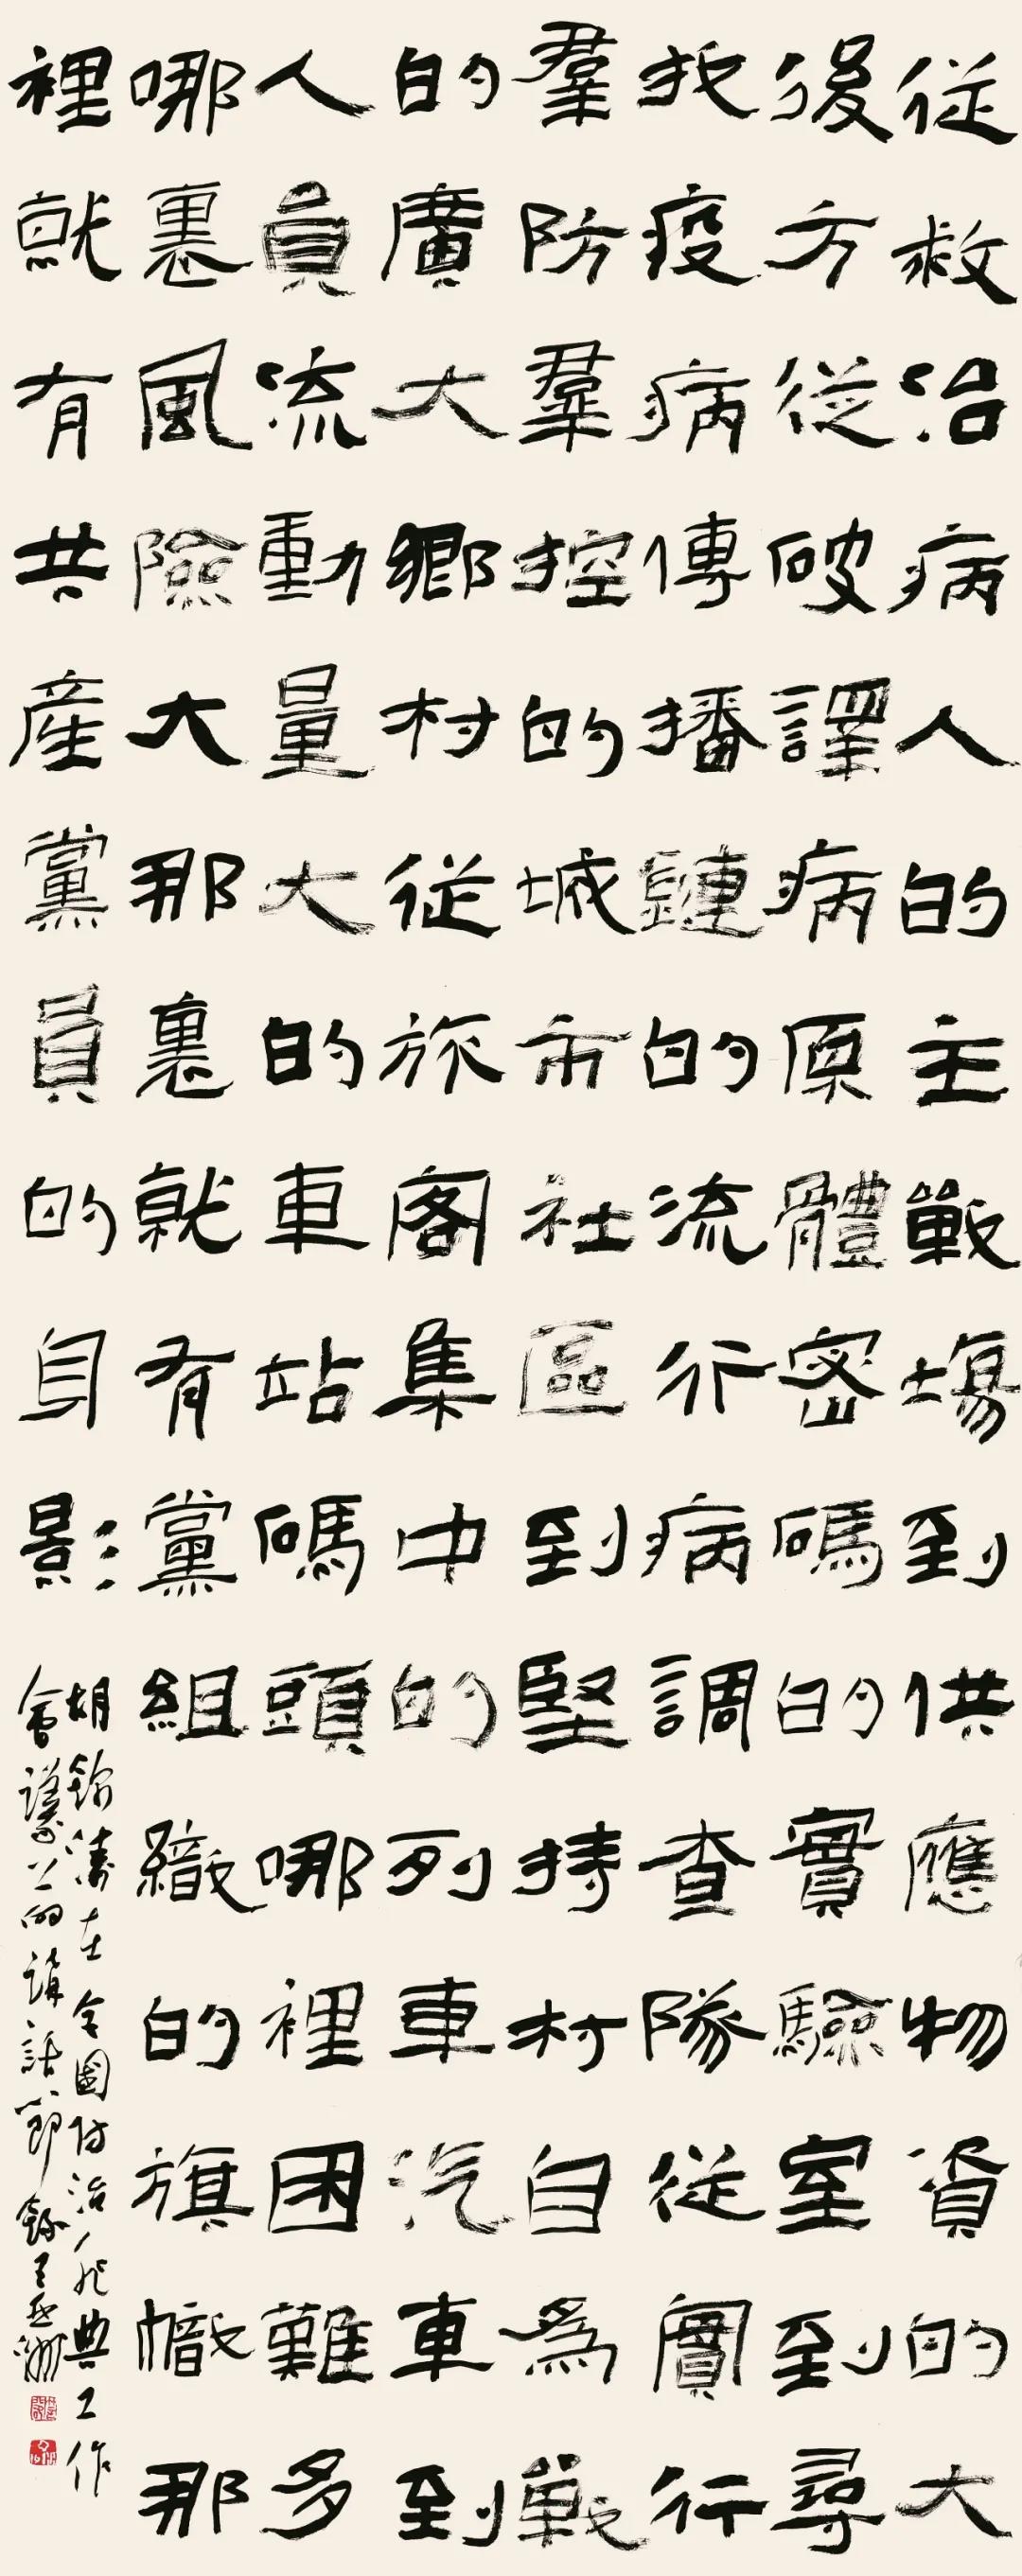 従救治病人的主戰場到供應物資的大
後方従破譯病原體密碼的實驗室到尋
找疫病傳播鏈的流行病調查隊従實行
羣防羣控的城市社區到堅持村自為戰
的廣大鄉村従旅客集中的列車汽車到
人員流動量大的車站碼頭哪裡困難多
哪裏風險大那裏就有黨組織的旗幟那
裡就有共產黨員的身影
胡錦濤在全國防治非典工作
會議上的講話節錄